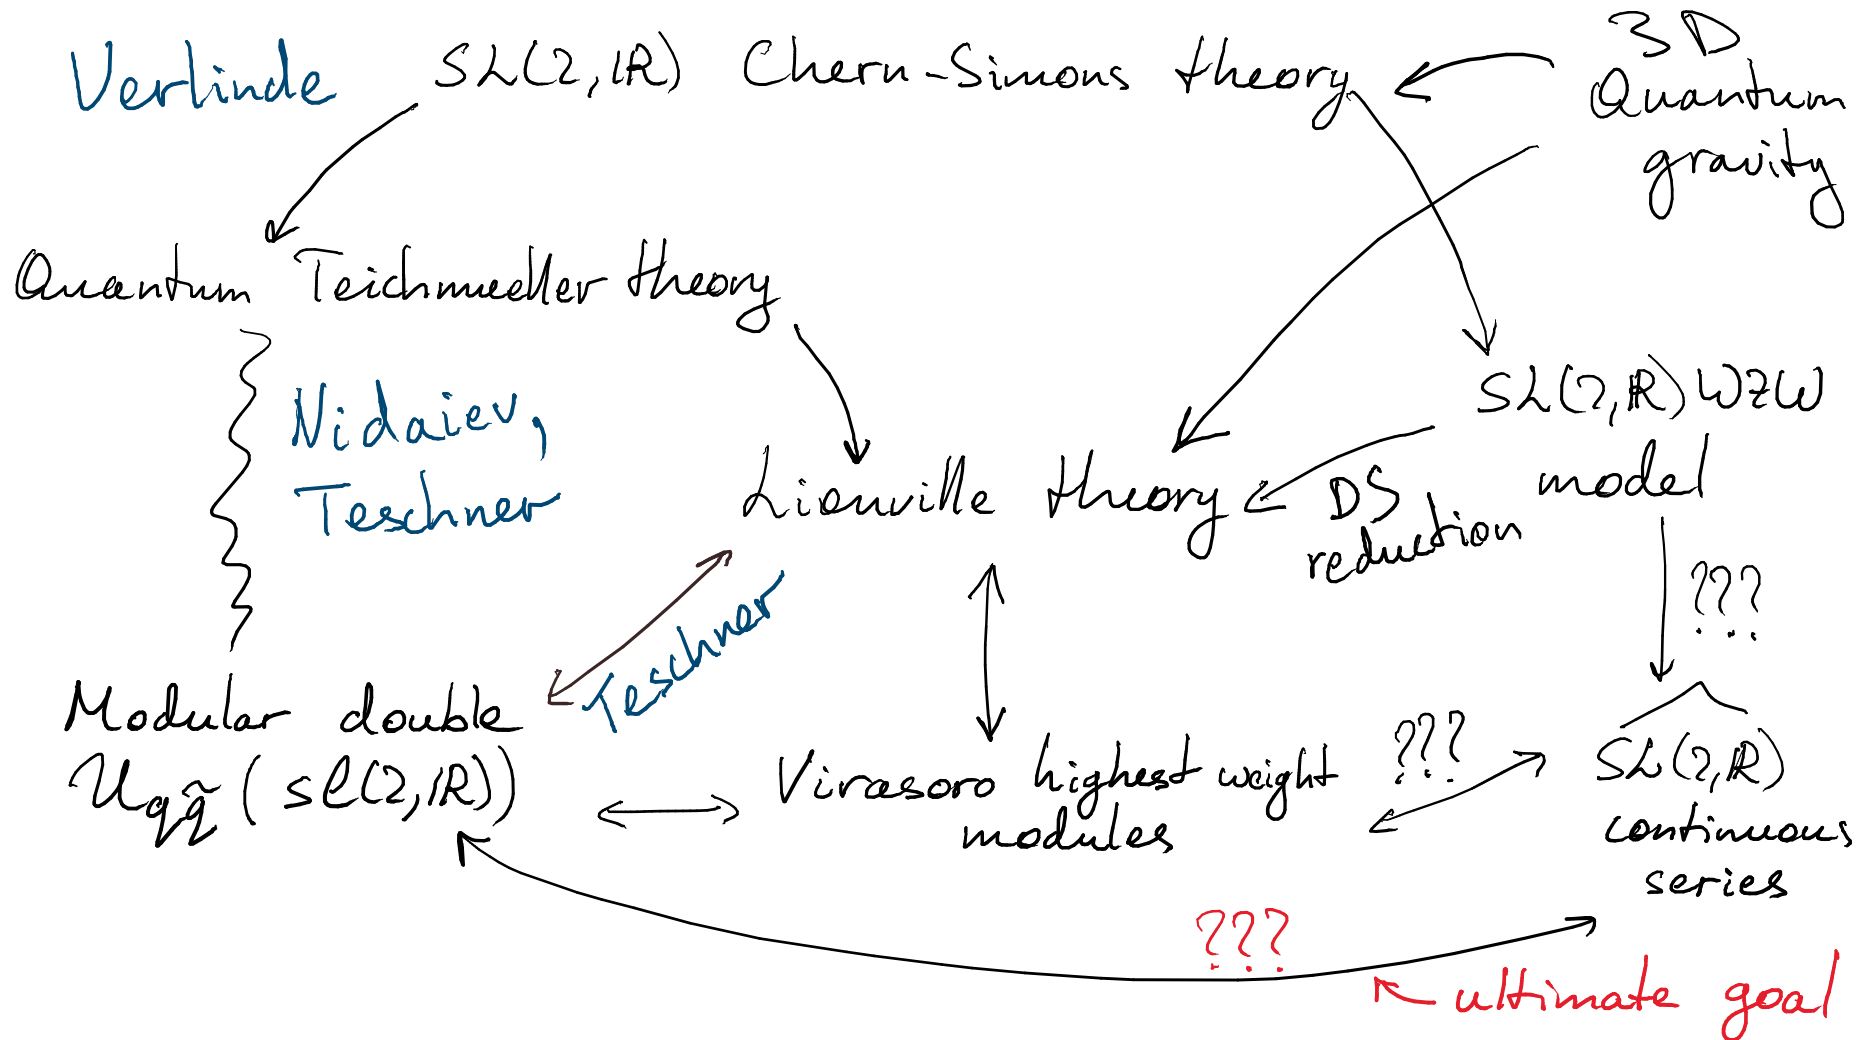 Verlinde
SL(2,ℝ) Chern-Simons theory
3D
Quantum
gravity
Quantum Teichmueller theory
Nidaiev,
Teschner
SL(2,ℝ) WZW
model
Liouville theory
DS
reduction
???
Teschner
Modular double
U_{q\tilde{q}}(sl(2,ℝ))
Virasoro highest weight
modules
???
SL(2,ℝ)
continuous
series
???
ultimate goal